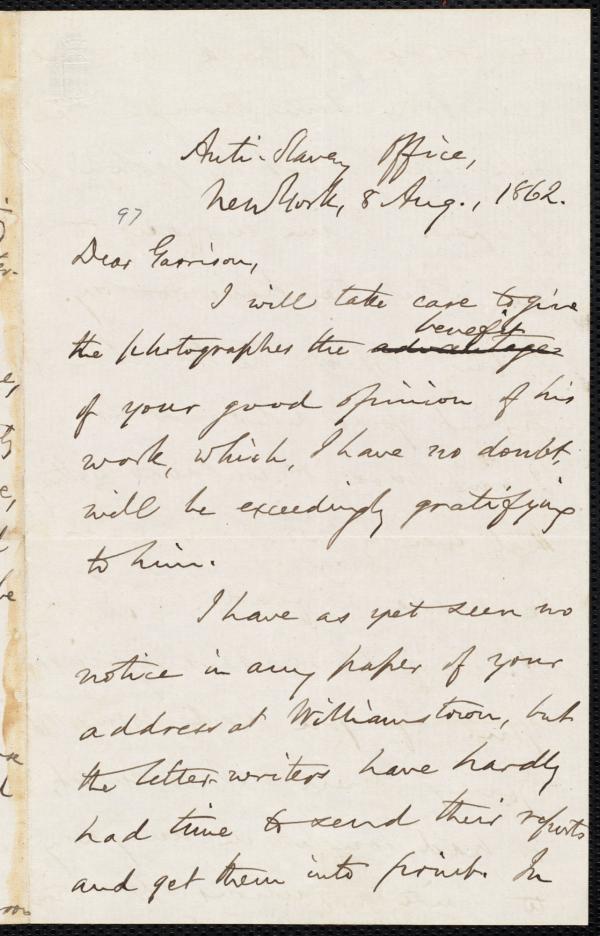 Anti-Slavery Office,
New York, 8 Aug., 1862.
97
Dear Garrison,
I will take care to give
benefit
the photographer the advantage
of your good opinion of his
work, which, I have no doubt,
will be exceedingly gratifying
to him.
I have as yet seen no
notice in any paper of your
address at Williamstown, but
the letter-writers have hardly
had time to send their reports
and get them into print. In